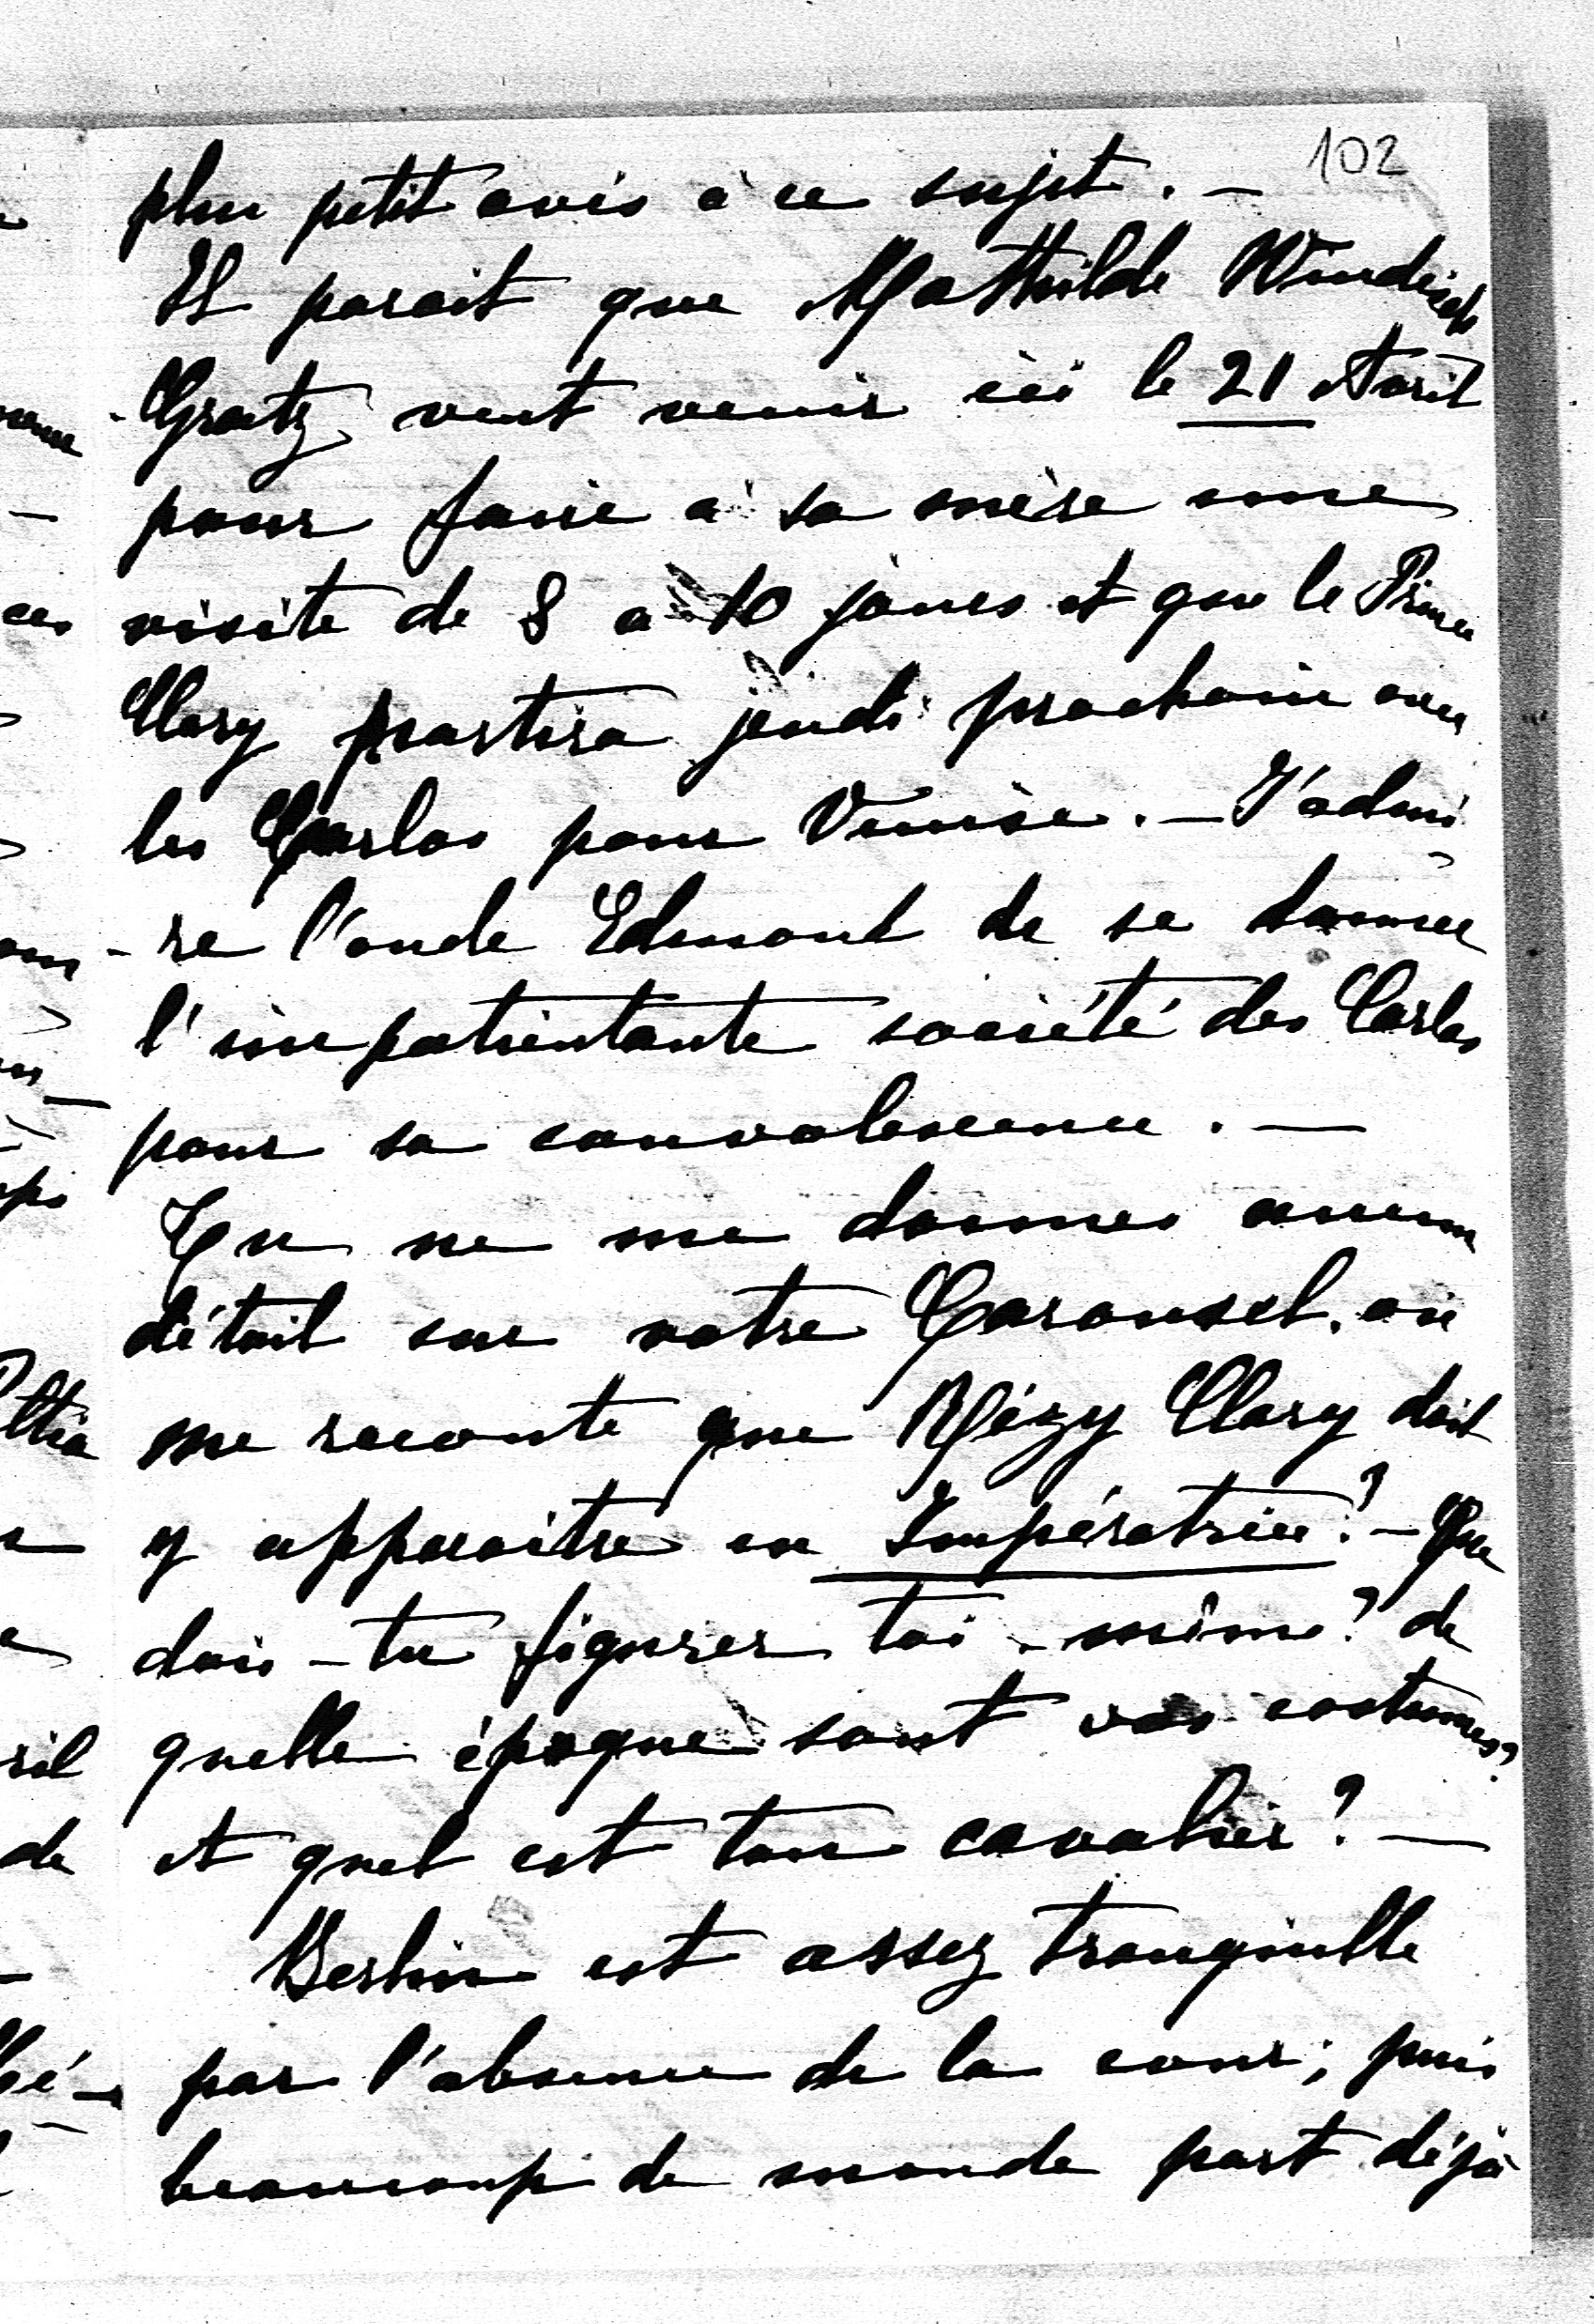 102
plus petit avis à ce sujet. —
Il parait que Mathilde Windisch
-Graetz veut venir ici le 21 Avril
pour faire à sa mère une
visite de 8 a 10 jours et que le Prince
Clary partira jeudi prochain avec
les Carlos pour Venise. — J'admi
-re l'oncle Edmond de se donner
l'impatientante société des Carlos
pour sa convalescence. —
Tu ne me donnes aucun
détail sur votre Carousel. on
me raconte que Mézy Clary doit
y apparaitre en Impératrice? — Que
dois-tu figurer toi-même? de
quelle époque sont vos costumes?
et quel est ton cavalier? —
Berlin est assez tranquille
par l'absence de la cour; puis
beaucoup de monde part déjà